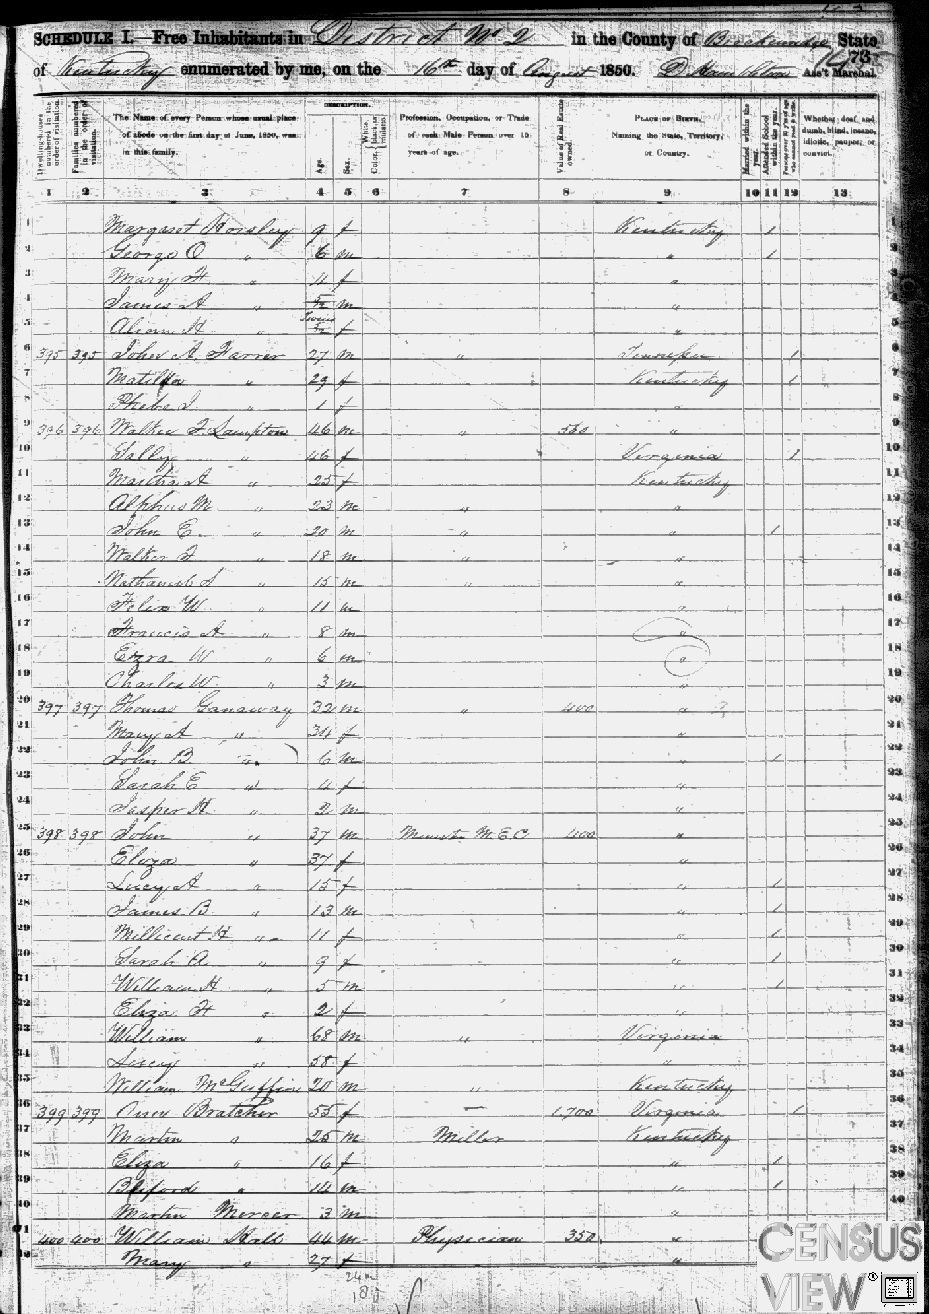 SCHEDULE I.—Free Inhabitants in District No 2 in the County of Breckenridge State
of Kentucky enumerated by me, on the 16th day of August 1850. D Hamilton Ass't Marshal. 73
Dwelling-houses numbered in the order of visitation.
Families numbered in the order of visitation.
The Name of every Person whose usual place of abode on the first day of June, 1850, was in this family.
DESCRIPTION.
Age.
Sex.
Color, White, black, or mulatto.
Profession, Occupation, or Trade of each Male Person over 15 years of age.
Value of Real Estate owned.
PLACE OF BIRTH, Naming the State, Territory, or Country.
Married within the year.
Attended School within the year.
Persons over 20 y'rs of age who cannot read & write.
Whether deaf and dumb, blind, insane, idiotic, pauper, or convict.
1 2 3 4 5 6 7 8 9 10 11 12 13
1 Margaret Horsley 9 f Kentucky 1 1
2 George O " 6 m " 1 2
3 Mary H " 4 f "
4 James A " m "
5 H " Twins f " 5
6 395 395 John A. Farrer 27 m " 1 6
7 Matilda " 29 f Kentucky 1 7
8 Phebe J " 1 f " 8
9 396 396 Walker F Lampton 46 m " " 9
10 Sally " 46 f Virginia 1 10
11 Martha A " 25 f Kentucky 11
12 Alpheus M " 23 m " " 12
13 John E. " 20 m " " 1 13
14 Walker F " 18 m " " 14
15 Nathaniel S " 15 m " " 15
16 Felix W. " 11 m " 16
17 Francis A " 8 m " 17
18 Ezra W " 6 m " 18
19 Charles W " 3 m " 19
20 397 397 Thomas Ganaway 32 m " 400 " 20
21 Mary A " f " 21
22 John B. " 6 m " 1 22
23 Sarah E " 4 f " 23
24 Jasper H " 2 m " 24
25 398 398 John " 37 m Minister M.E.C 400 " 25
26 Eliza " 37 f " 26
27 Lucy A " 15 f " 1 27
28 James B " 13 m " 1 28
29 Millicent H " 11 f " 1 29
30 Sarah A. " 9 f " 1 30
31 William H " 5 m " 1 31
32 Eliza H " 2 f " 32
33 William " 68 m " Virginia 33
34 Lucy " 58 f " 34
35 William McGuffin 20 m " Kentucky 35
36 399 399 Bratcher 55 f — 1,700 Virginia 1 36
37 Martin " 25 m Miller Kentucky 37
38 Eliza " 16 f " 1 38
39 " 14 m " 1 39
40 Martin Mercer 3 m " 40
41 400 400 William Hall 44 m Physician 350 "
Mary " 27 f "
CENSUS
VIEW®